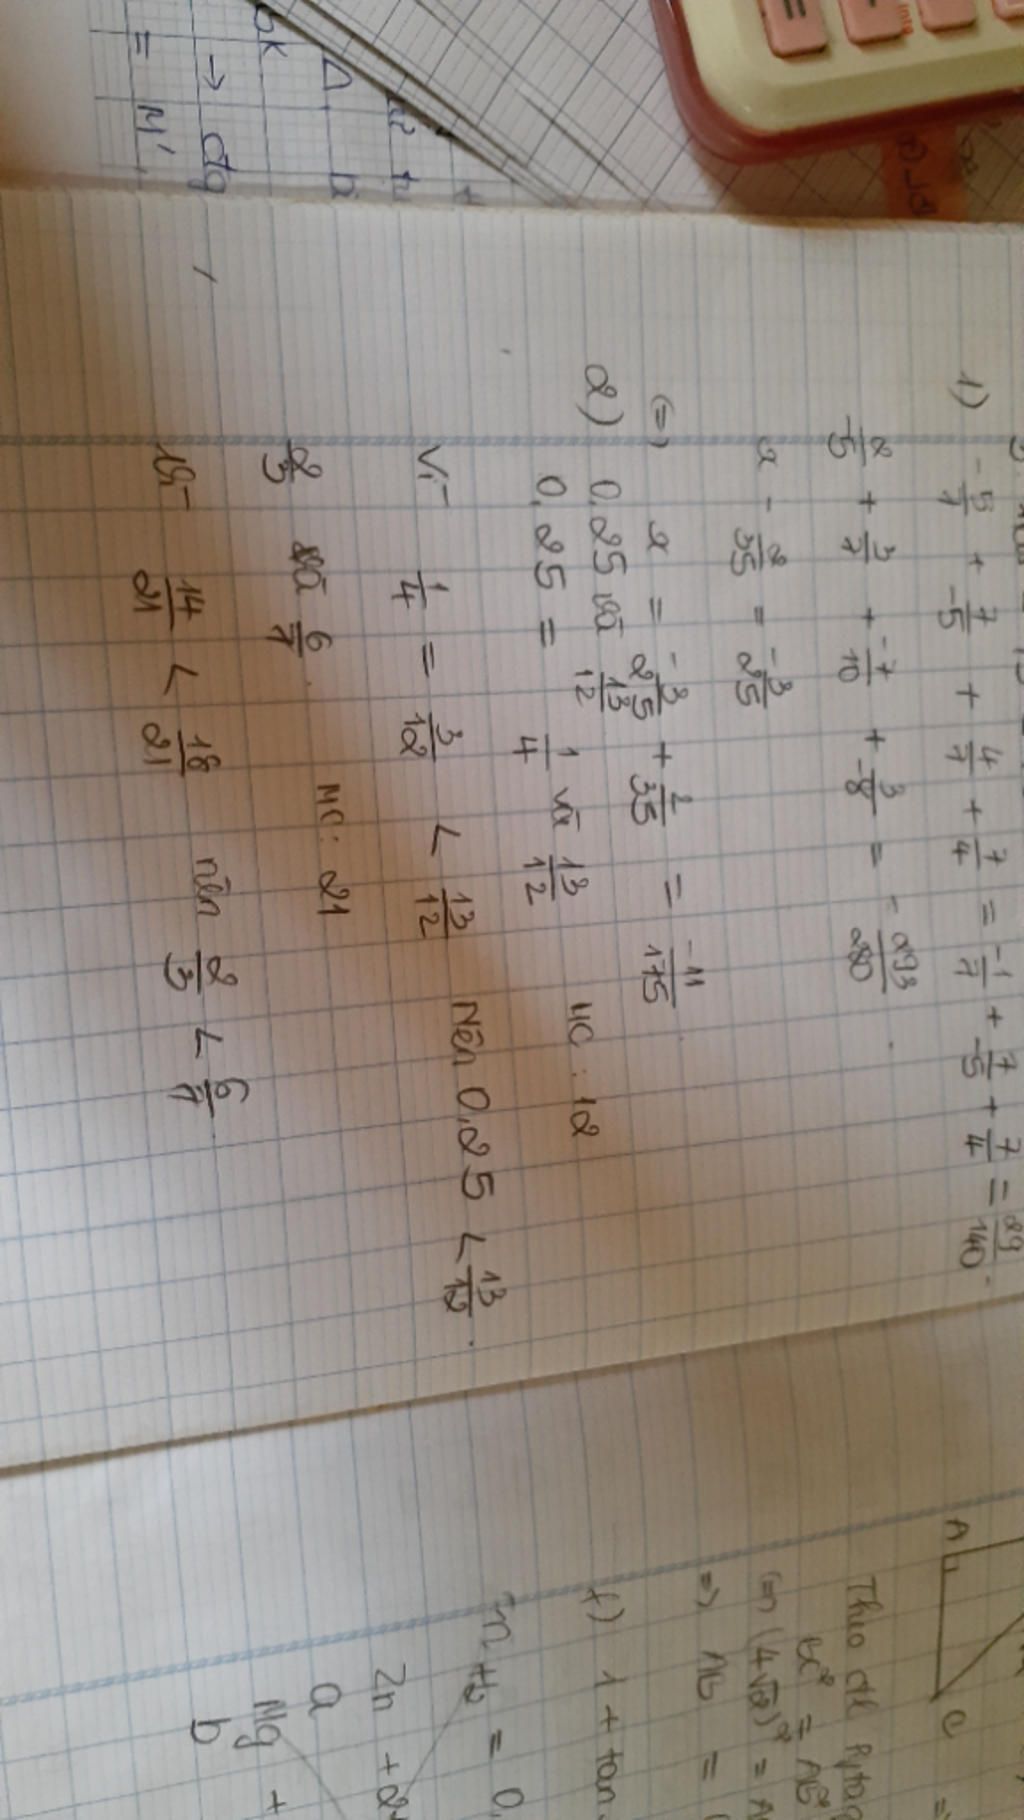 1) -5/7 + 7/-5 + 4/7 + 7/4 = -1/7 + 7/-5 + 7/4 = 29/140
2/-5 + 3/7 + -7/10 + 3/-8 = -293/280
x - 2/35 = -3/25
(=) x = -3/25 + 2/35 = -11/175
2) 0,25 và 13/12
0,25 = 1/4 và 13/12 MC : 12
Vì 1/4 = 3/12 < 13/12 Nên 0,25 < 13/12.
2/3 và 6/7. MC: 21
Vì 14/21 < 18/21 nên 2/3 < 6/7
A
C
Theo
BC² = AB²
(=) (4√2)² =
=) AB =
f) 1 + tan
= 0,
Zn + 2
a
Mg +
b
Δ
→ dg
= M'